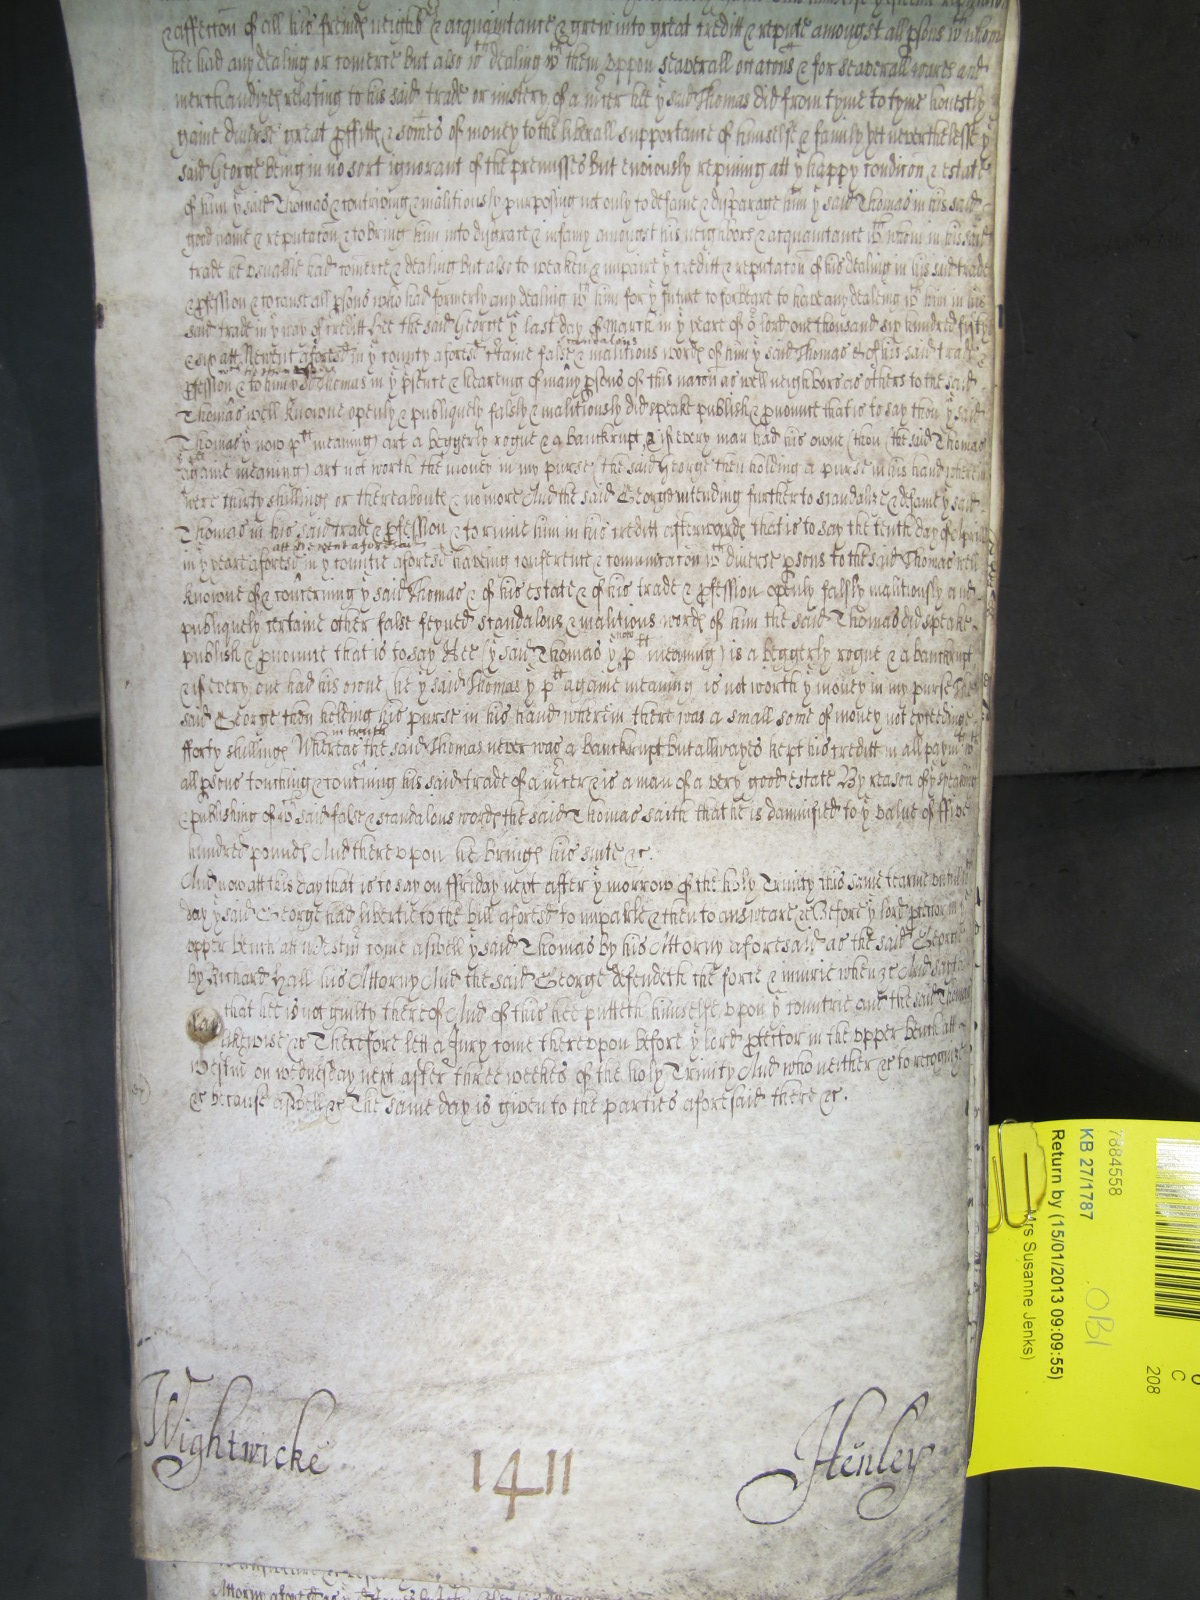 & affection of all his freinds neighb & acquaintance & grew into great creditt & repute amongst all psons wth whom
hee had any dealing or comerce But also wth dealing wth them uppon seaverall occatons & for seaverall wares and
merchandizes relating to his said trade or mistery of a mcer hee y said Thomas did from tyme to tyme honestly
gaine diverse great pffitts & somes of money to the liberall supportance of himselfe & family yet neverthelesse y
said George being in no sort ignorant of the premisses But enviously repining att y happy condicon & estate
of him y said Thomas & contriving & malitiously purposing not only to defame & disparage him y said Thomas in his said
good name & reputacon & to bring him into disgrace & infamy amongst his neighbors & acquaintance wth whom in his said
trade he usuallie had comerce & dealing But also to weaken & impaire y creditt & reputaton of his dealing in his said trade
& pfession & to cause all psons who had formerly any dealing wth him for y future to forbeare to have any dealing wth him in his
said trade in y way of creditt hee the said George y last day of March in y yeare of o lord one thousand six hundred fifty
& six att Newent aforesd in y county aforesd certaine false scandalous & malitious words of him y said Thomas & of his said trade &
pfession & to him y sd Thomas in y psence & heareing of many psons of this nacon as well neighbors as others to the said
Thomas well knowne openly & publiquely falsly & malitiously did speake publish & pnounce that is to say thou y said
Thomas y now ptt meaning) art a beggerly rogue & a banckrupt & if every man had his owne thou the said Thomas
againe meaning) art not worth the money in my purse (the said George then holding a purse in his hand wherein
were thirty shillings or thereabouts & no more And the said George intending further to scandalize & defame y said
Thomas in his said trade & pfession & to ruine him in his creditt afterwards that is to say the tenth day of Aprill
in y yeare aforesd att Newent aforesaid in y countie aforesd haveing conference & comunicacon wth diverse psons to the said Thomas well
knowne of & concerning y said Thomas & of his estate & of his trade & pfession openly falsly malitiously and
publiquely certaine other false feyned scandalous & malitious words of him the said Thomas did speake
publish & pnounce that is to say Hee (y said Thomas y now ptt meaning) is a beggerly rogue & a banckrupt
& if every one had his owne he y said Thomas y ptt againe meaning is not worth y money in my purse the
said George then holding his purse in his hand wherein there was a small some of money not exceeding
fforty shillings Whereas in truth the said Thomas never was a banckrupt but allwayes kept his creditt in all paymts wth
all psons touching & concning his said trade of a mcer & is a man of a very good estate By reason of y speaking
& publishing of wch said false & scandalous words the said Thomas saith that he is damnified to y value of ffive
hundred pounds And thereuppon he brings his suite &c.
And now att this day that is to say on ffriday next after y morrow of the holy Trinity this same tearme untill
day y said George had libertie to the bill aforesd to imparle & then to answeare &c Before y lord ptector in y
upper bench att Westm come aswell y said Thomas by his Attorny aforesaid as the said George
by Richard Hall his Attorny And the said George defendeth the force & iniurie when &c And sayth
that hee is not guilty thereof And of this hee putteth himselfe upon y countrie and the said Thomas
likewise &c Therefore lett a Jury come thereupon before y lord ptector in the upper bench att
Westm on wednesday next after three weekes of the holy Trinity And who neither &c to recognize
&c because aswell &c The same day is given to the parties aforesaid there &c.
Wightwicke
1411
Henley
7884558
KB 27/1787
Return by (15/01/2013 09:09:55)
Mrs Susanne Jenks)
OBI
C
208